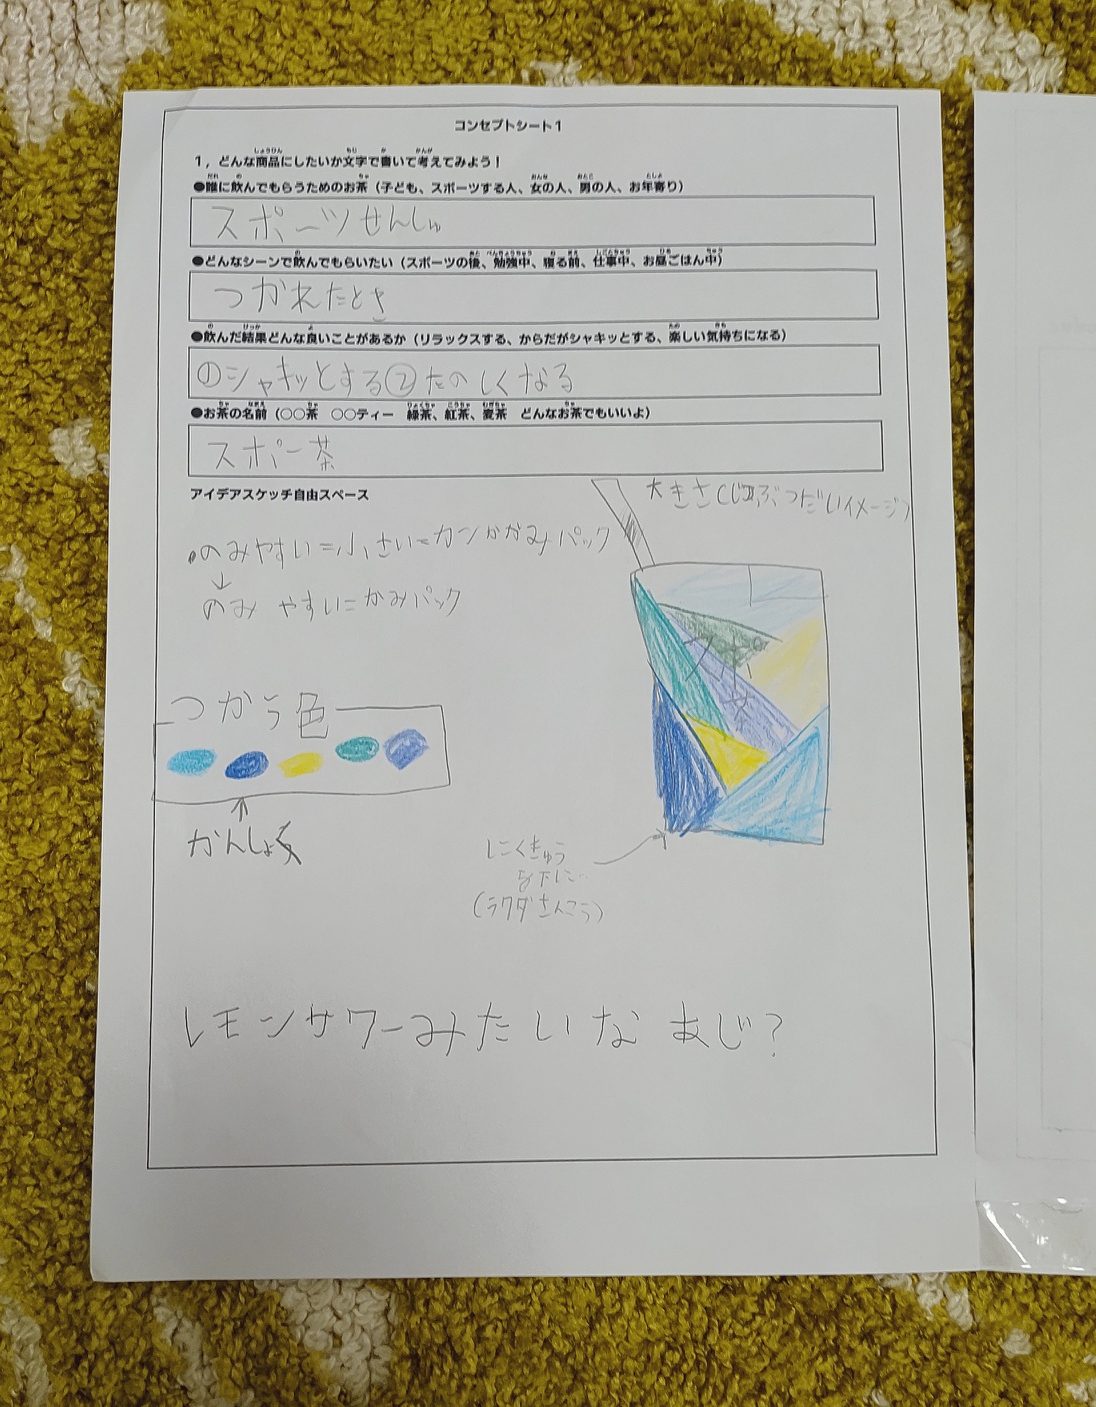 コンセプトシート1
1，どんな商品にしたいか文字で書いて考えてみよう！
●誰に飲んでもらうためのお茶（子ども、スポーツする人、女の人、男の人、お年寄り）
スポーツせんしゅ
●どんなシーンで飲んでもらいたい（スポーツの後、勉強中、寝る前、仕事中、お昼ごはん中）
つかれたとき
●飲んだ結果どんな良いことがあるか（リラックスする、からだがシャキッとする、楽しい気持ちになる）
①シャキッとする②たのしくなる
●お茶の名前（○○茶　○○ティー　緑茶、紅茶、麦茶　どんなお茶でもいいよ）
スポー茶
アイデアスケッチ自由スペース
大きさ（じつぶつだいイメージ）
・のみやすい=小さい=カンかかみパック
↓
のみやすい=かみパック
スポ
茶
つかう色
↑
かんしょく
レモンサワーみたいなあじ？